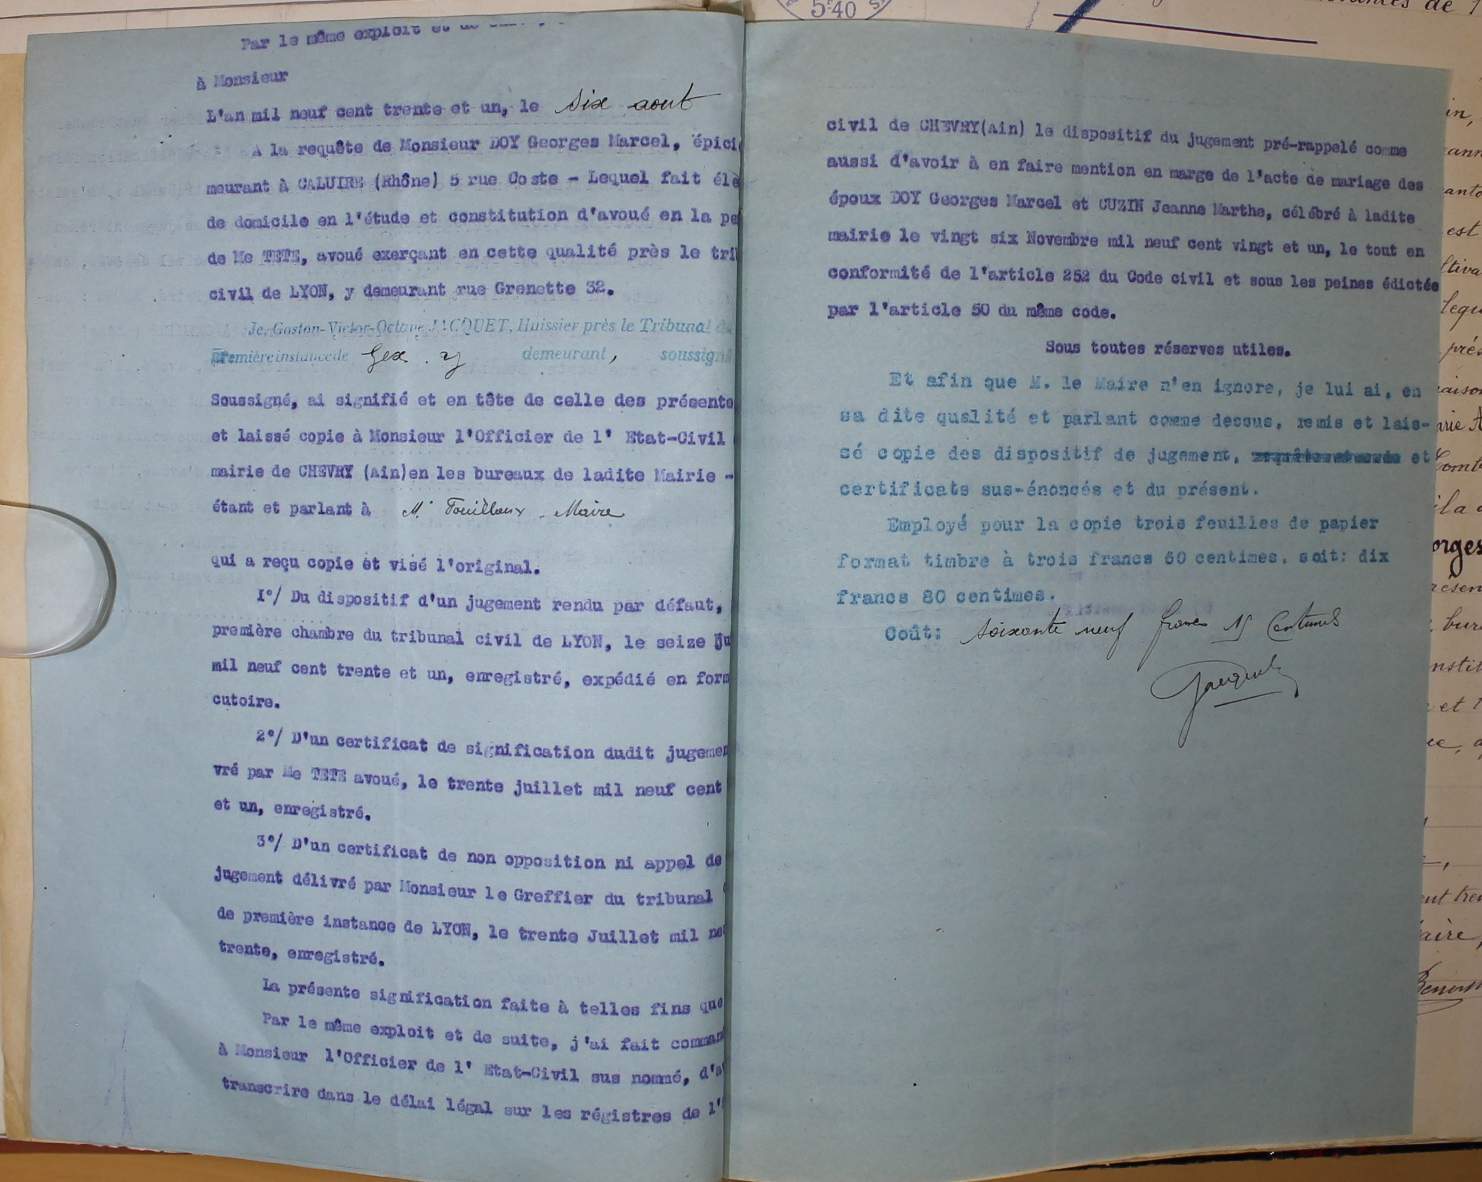 Par le même exploit et de
à Monsieur
L'an mil neuf cent trente et un, le six aout
A la requête de Monsieur DOY Georges Marcel, épici
meurant à CALUIRE (Rhône) 5 rue Coste - Lequel fait élè
de domicile en l'étude et constitution d'avoué en la pe
de Me TETE, avoué exerçant en cette qualité près le tri
civil de LYON, y demeurant rue Grenette 32.
Je, Gaston-Victor-Octave JACQUET, Huissier près le Tribunal d
première instance de Gex . y demeurant, soussign
Soussigné, ai signifié et en tête de celle des présente
et laissé copie à Monsieur l'Officier de l' Etat-Civil
mairie de CHEVRY (Ain)en les bureaux de ladite Mairie -
étant et parlant à M. Fouilloux . Maire
qui a reçu copie et visé l'original.
1°/ Du dispositif d'un jugement rendu par défaut,
première chambre du tribunal civil de LYON, le seize Ju
mil neuf cent trente et un, enregistré, expédié en form
cutoire.
2°/ D'un certificat de signification dudit jugemen
vré par Me TETE avoué, le trente juillet mil neuf cent
et un, enregistré.
3°/ D'un certificat de non opposition ni appel de
jugement délivré par Monsieur le Greffier du tribunal
de première instance de LYON, le trente Juillet mil ne
trente, enregistré.
La présente signification faite à telles fins que
Par le même exploit et de suite, j'ai fait comman
à Monsieur l'Officier de l' Etat-Civil sus nommé, d'a
transcrire dans le délai légal sur les régistres de l'
civil de CHEVRY(Ain) le dispositif du jugement pré-rappelé comme
aussi d'avoir à en faire mention en marge de l'acte de mariage des
époux DOY Georges Marcel et CUZIN Jeanne Marthe, célébré à ladite
mairie le vingt six Novembre mil neuf cent vingt et un, le tout en
conformité de l'article 252 du Code civil et sous les peines édictée
par l'article 50 du même code.
Sous toutes réserves utiles.
Et afin que M. le Maire n'en ignore, je lui ai, en
sa dite qualité et parlant comme dessus, remis et lais-
sé copie des dispositif de jugement, et
certificats sus-énoncés et du présent.
Employé pour la copie trois feuilles de papier
format timbre à trois francs 60 centimes, soit: dix
francs 80 centimes.
Coût: soixante neuf francs 15 Centimes
Jacquet
5.40